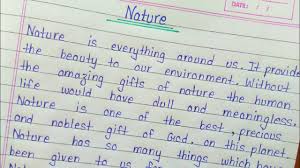 DATE: / /
Nature
Nature is everything around us. It provide
the beauty to our environment. Without
the amazing gifts of nature the human
life would have dull and meaningless.
Nature is one of the best, precious
and noblest gift of God, on this planet
Nature has so many things which have
been given to us for